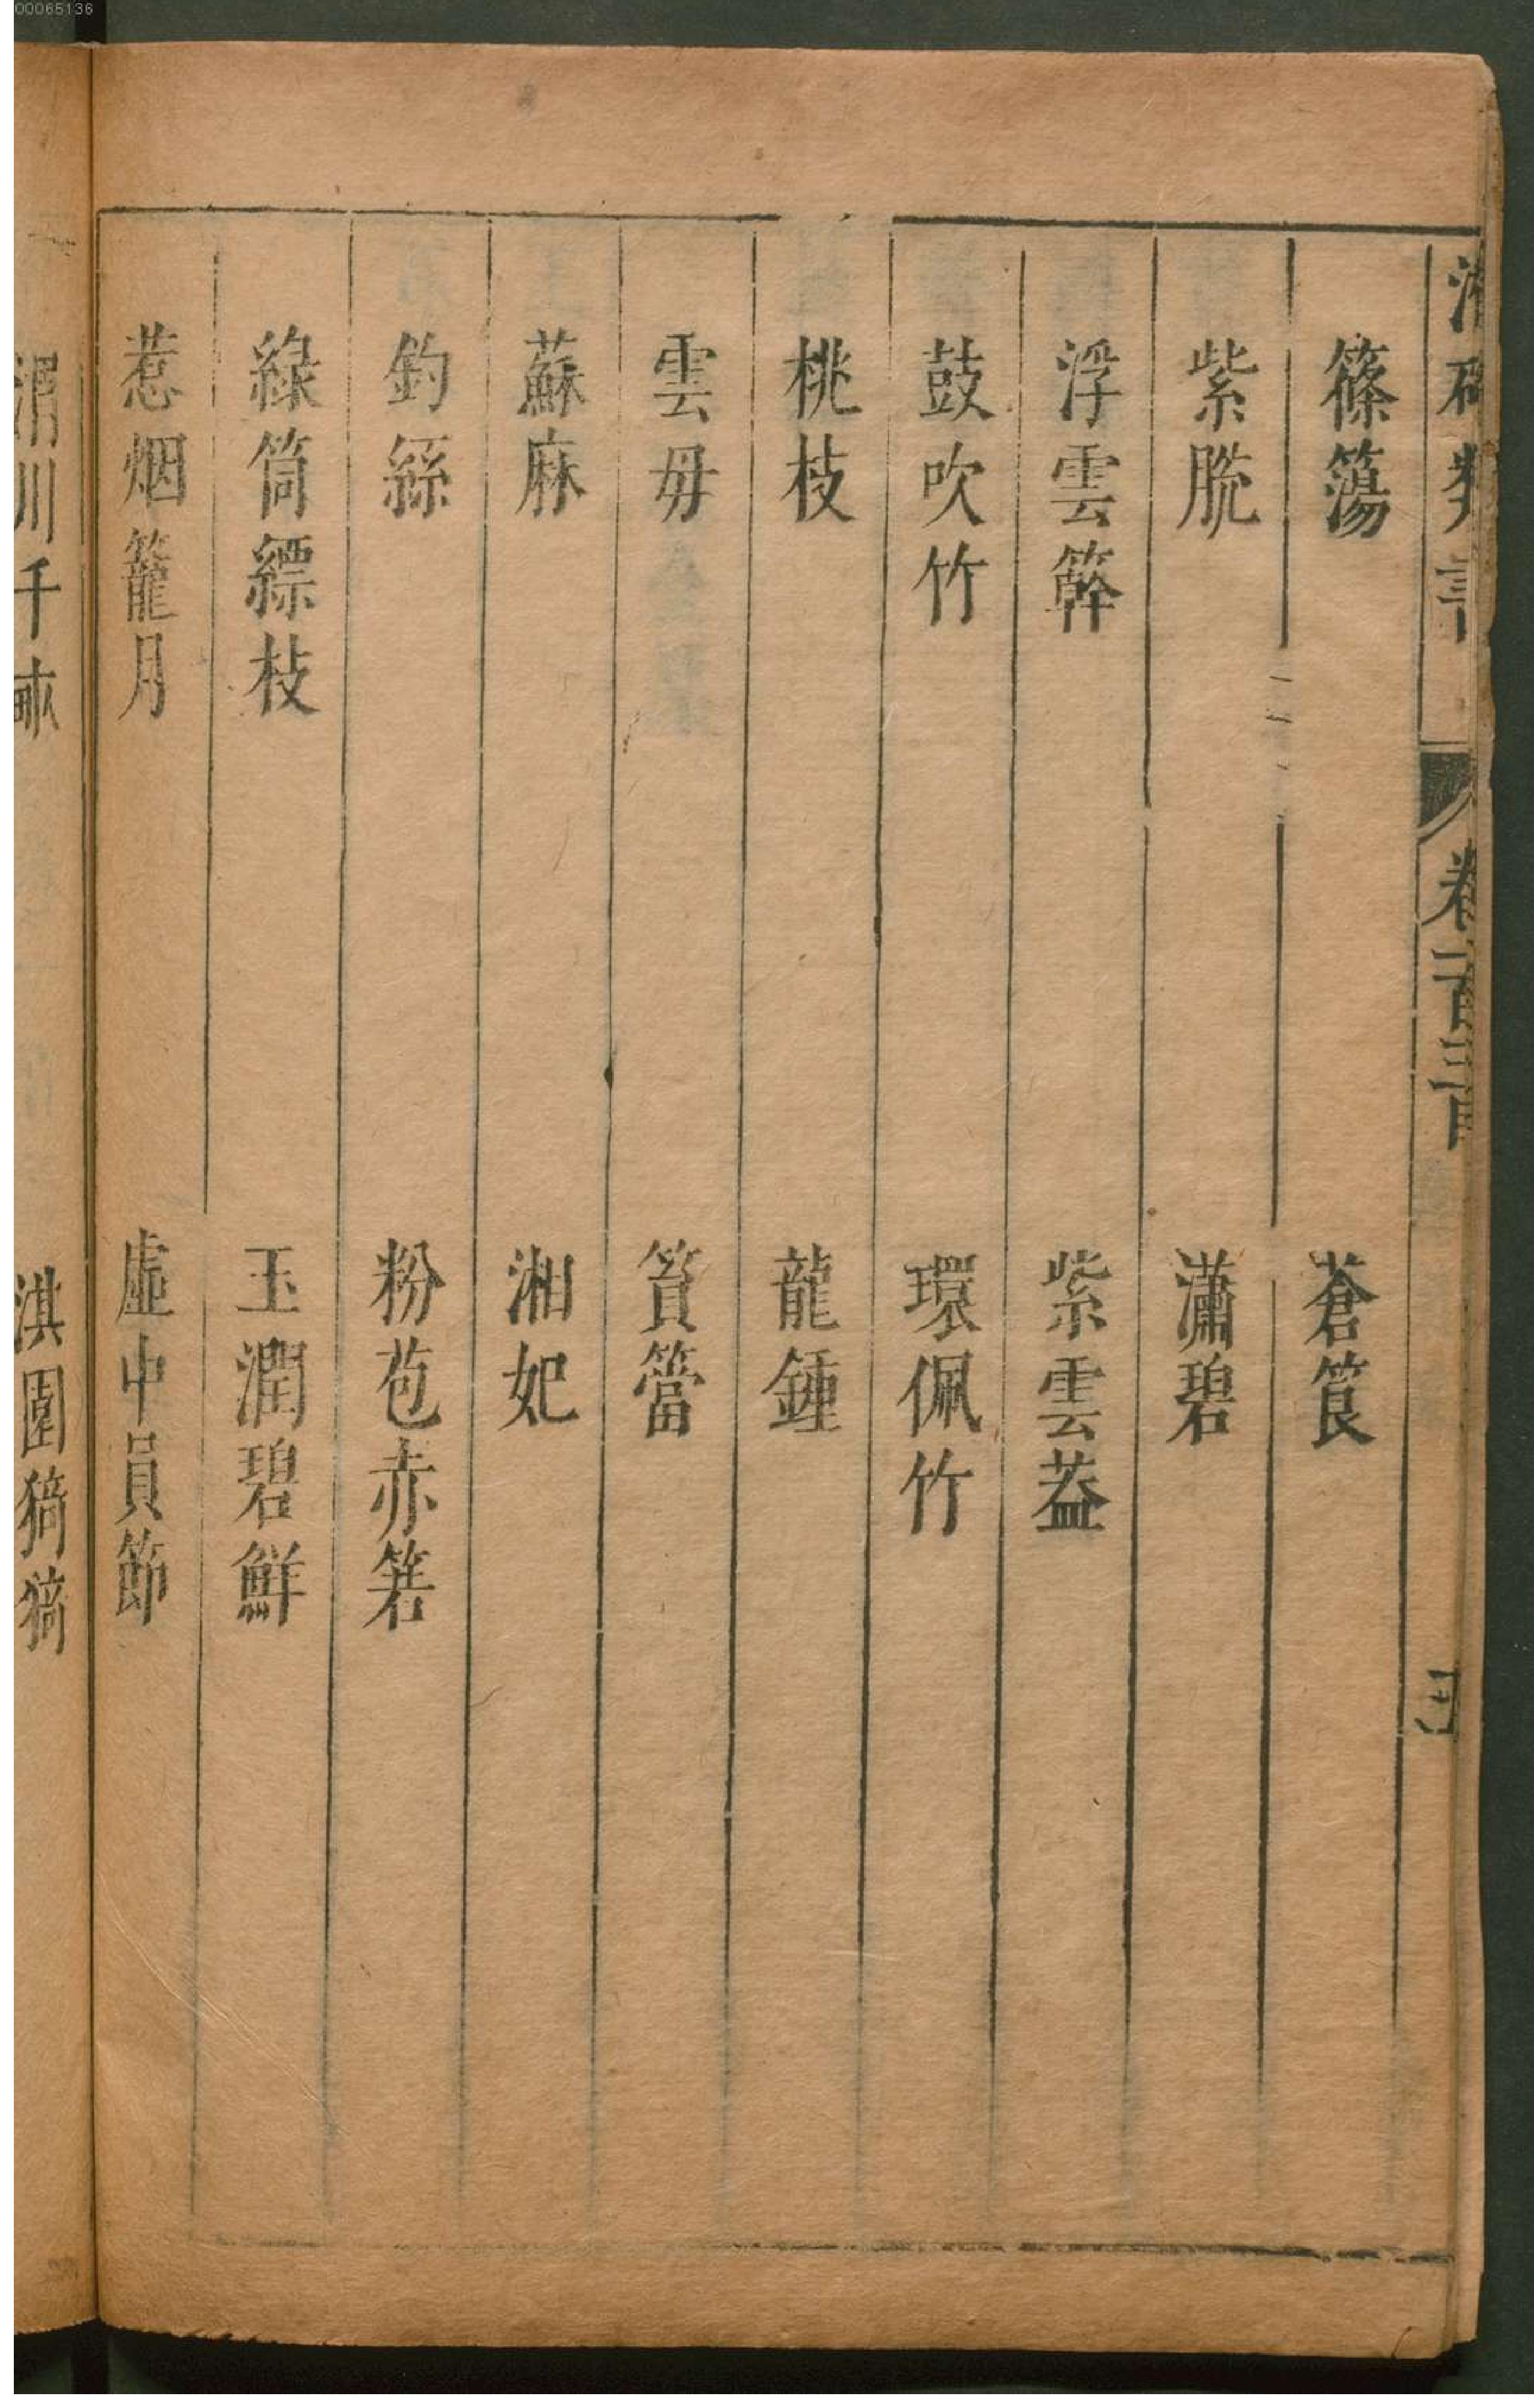 00065136
卷一百八十三
篠簜 蒼筤
紫脫 瀟碧
浮雲簳 紫雲葢
鼓吹竹 環佩竹
桃枝 龍鍾
雲母 篔簹
蘇麻 湘妃
釣絲 粉苞赤箬
綠筒縹枝 玉潤碧鮮
惹烟籠月 虛中員節
渭川千畝 淇園猗猗